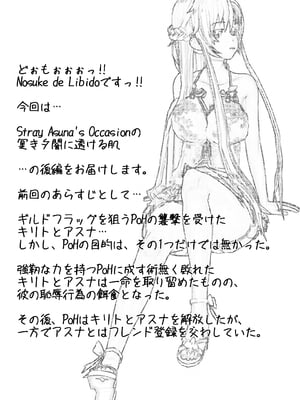 どぉもぉぉぉっ!!
Nosuke de Libidoですっ!!
今回は…
Stray Asuna's Occasionの
夏き夕闇に透ける肌
…の後編をお届けします。
前回のあらすじとして…
ギルドフラッグを狙うPoHの襲撃を受けた
キリトとアスナ…
しかし、PoHの目的は、その1つだけでは無かった。
強靭な力を持つPoHに成す術無く敗れた
キリトとアスナは一命を取り留めたものの、
彼の恥辱行為の餌食となった。
その後、PoHはキリトとアスナを解放したが、
一方でアスナとはフレンド登録を交わしていた。